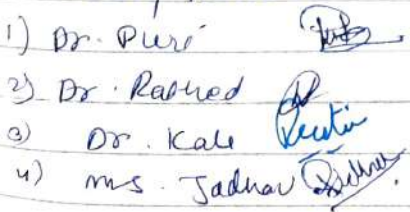 1) Dr. Puri
2) Dr. Rathod
3) Dr. Kale
4) Ms. Jadhav